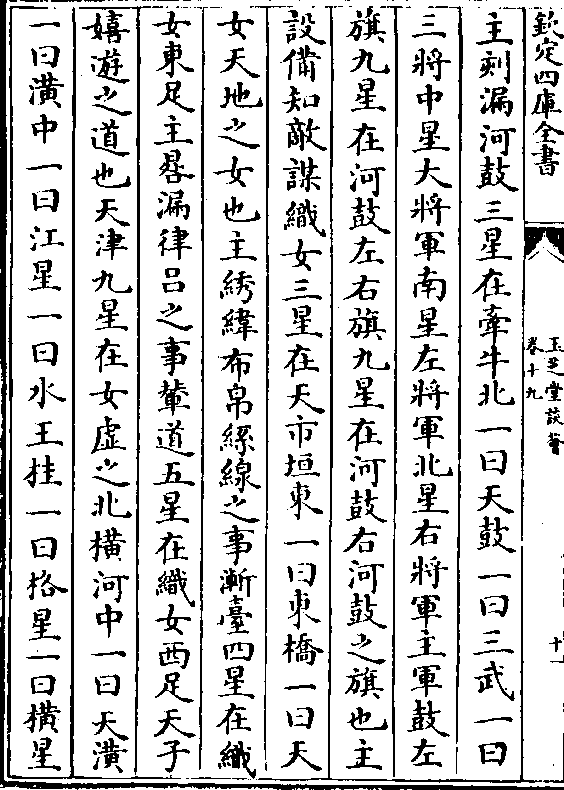 欽定四庫全書
玉芝堂談薈
卷十九
十一
主刻漏河鼓三星在牽牛北一曰天鼓一曰三武一曰
三將中星大將軍南星左將軍北星右將軍主軍鼓左
旗九星在河鼓左右旗九星在河鼓右河鼓之旗也主
設備知敵謀織女三星在天市垣東一曰東橋一曰天
女天地之女也主綉緯布帛絲線之事漸臺四星在織
女東足主晷漏律吕之事輦道五星在織女西足天子
嬉遊之道也天津九星在女虚之北橫河中一曰天潢
一曰潢中一曰江星一曰水王挂一曰格星一曰橫星